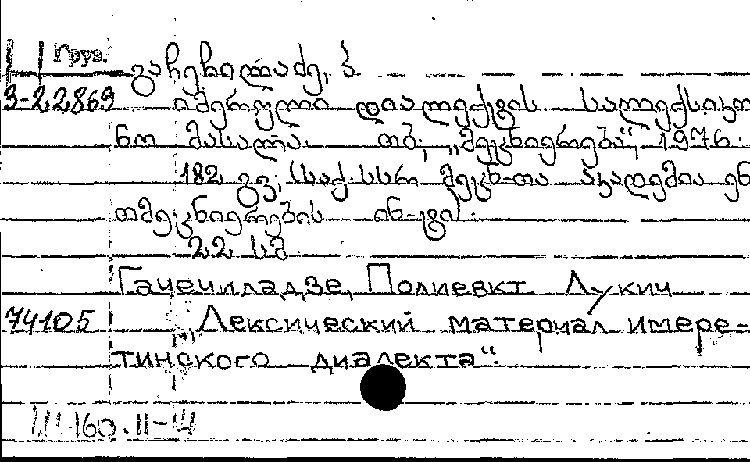 Груз.
გაჩეჩილაძე, პ.
3-22869 იმერული დიალექტის სალექსიკო
ნო მასალა. თბ., „მეცნიერება“, 1976.
182 გვ. (საქ. სსრ მეცნ-თა აკადემია ენ
ათმეცნიერების ინ-ტი).
22 სმ
Гачечиладзе, Полиевкт Лукич
74105 „Лексический материал имере-
тинского диалекта“.
160.II-